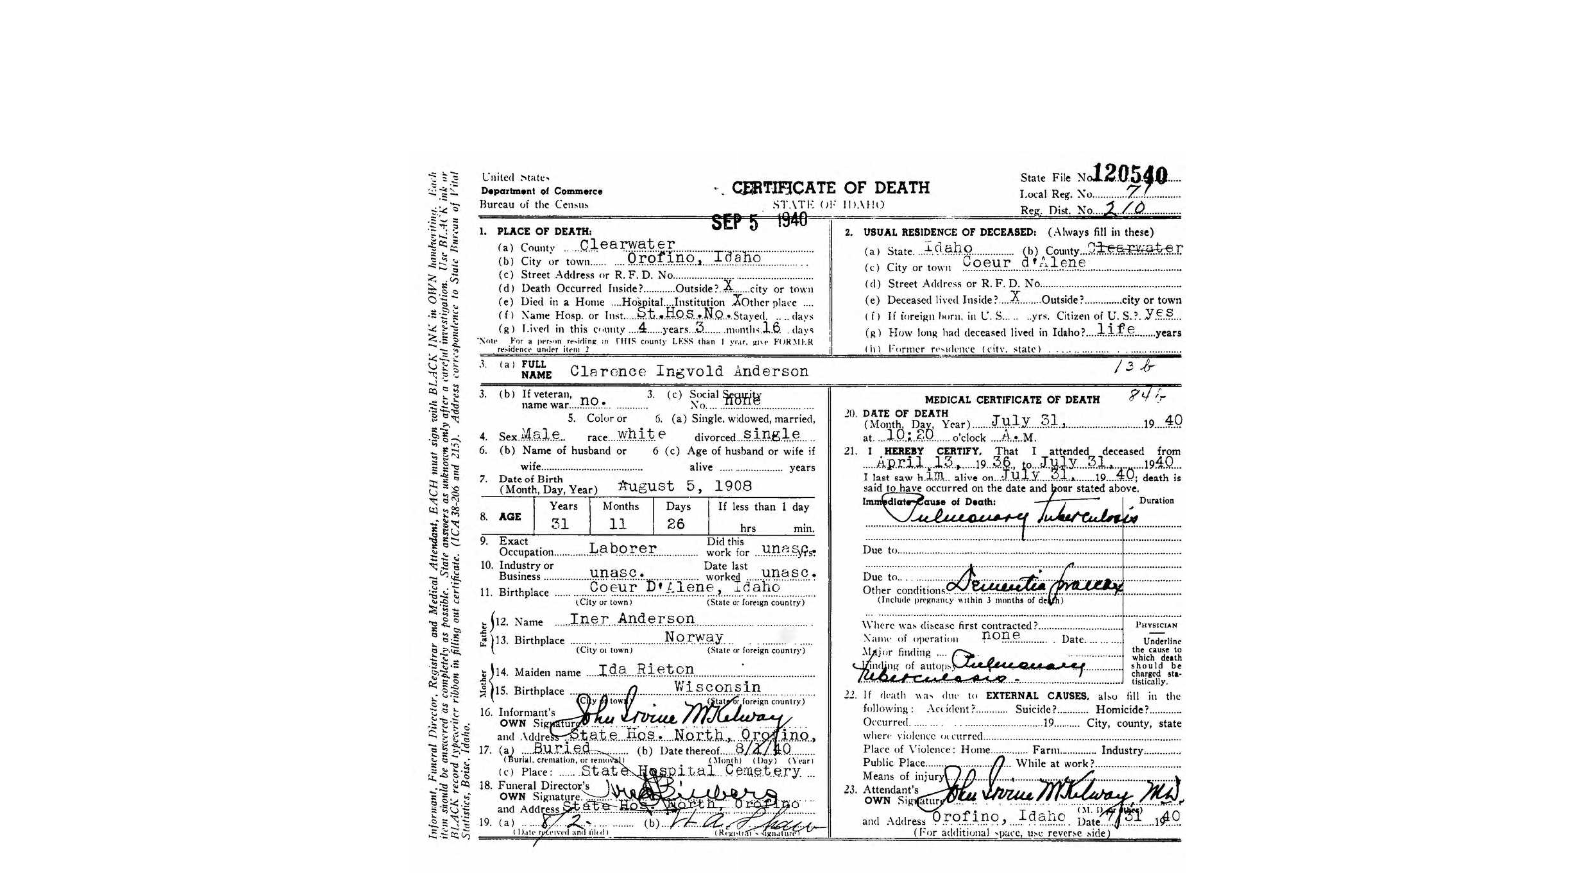 United States
Department of Commerce
Bureau of the Census
CERTIFICATE OF DEATH
STATE OF IDAHO
SEP 5 1940
State File No. 120540
Local Reg. No. 71
Reg. Dist. No. 210
Informant, Funeral Director, Registrar and Medical Attendant, EACH must sign with BLACK INK in OWN handwriting. Each
item should be answered as completely as possible. State answers as unknown only after a careful investigation. Use BLACK ink or
BLACK record typewriter ribbon in filling out certificate. (ICA 38-206 and 215). Address correspondence to State Bureau of Vital
Statistics, Boise, Idaho.
1. PLACE OF DEATH:
(a) County Clearwater
(b) City or town Orofino, Idaho
(c) Street Address or R. F. D. No.
(d) Death Occurred Inside? Outside? X city or town
(e) Died in a Home Hospital Institution X Other place
(f) Name Hosp. or Inst. St.Hos.No. Stayed days
(g) Lived in this county 4 years 3 months 16 days
Note For a person residing in THIS county LESS than 1 year, give FORMER
residence under item 2
2. USUAL RESIDENCE OF DECEASED: (Always fill in these)
(a) State Idaho (b) County Clearwater
(c) City or town Coeur d'Alene
(d) Street Address or R. F. D. No.
(e) Deceased lived Inside? X Outside? city or town
(f) If foreign born, in U. S. yrs. Citizen of U. S.? yes
(g) How long had deceased lived in Idaho? life years
(h) Former residence (city, state)
3. (a) FULL NAME Clarence Ingvold Anderson
13 b
3. (b) If veteran, name war no. 3. (c) Social Security No. none
5. Color or 6. (a) Single, widowed, married,
4. Sex Male race white divorced single
6. (b) Name of husband or 6 (c) Age of husband or wife if
wife alive years
7. Date of Birth
(Month, Day, Year) August 5, 1908
8. AGE Years Months Days If less than 1 day
31 11 26 hrs min.
9. Exact Occupation Laborer Did this work for unasc. yrs.
10. Industry or Business unasc. Date last worked unasc.
11. Birthplace Coeur D'Alene, Idaho
(City or town) (State or foreign country)
Father
12. Name Iner Anderson
13. Birthplace Norway
(City or town) (State or foreign country)
Mother
14. Maiden name Ida Rieton
15. Birthplace Wisconsin
(City or town) (State or foreign country)
16. Informant's
OWN Signature John Irvine McKelway
and Address State Hos. North, Orofino,
17. (a) Buried (b) Date thereof 8/2/40
(Burial, cremation, or removal) (Month) (Day) (Year)
(c) Place: State Hospital Cemetery
18. Funeral Director's
OWN Signature
and Address State Hos. North, Orofino
19. (a) 8/2- (b) H A Shaw
(Date received and filed) (Registrar's signature)
MEDICAL CERTIFICATE OF DEATH
20. DATE OF DEATH
(Month, Day, Year) July 31, 19 40
at 10:20 o'clock A. M.
21. I HEREBY CERTIFY, That I attended deceased from
April 13, 19 36, to July 31, 1940
I last saw him alive on July 31, 19 40; death is
said to have occurred on the date and hour stated above.
Immediate Cause of Death: Duration
Pulmonary Tuberculosis
Due to
Due to
Other conditions Dementia praecox
(Include pregnancy within 3 months of death)
Where was disease first contracted?
Name of operation none Date
Major finding
Finding of autopsy Pulmonary
tuberculosis.
PHYSICIAN
Underline
the cause to
which death
should be
charged sta-
tistically.
22. If death was due to EXTERNAL CAUSES, also fill in the
following: Accident? Suicide? Homicide?
Occurred 19 City, county, state
where violence occurred
Place of Violence: Home Farm Industry
Public Place While at work?
Means of injury
23. Attendant's
OWN Signature John Irvine McKelway, M.D.
and Address Orofino, Idaho Date 7/31 1940
(For additional space, use reverse side)